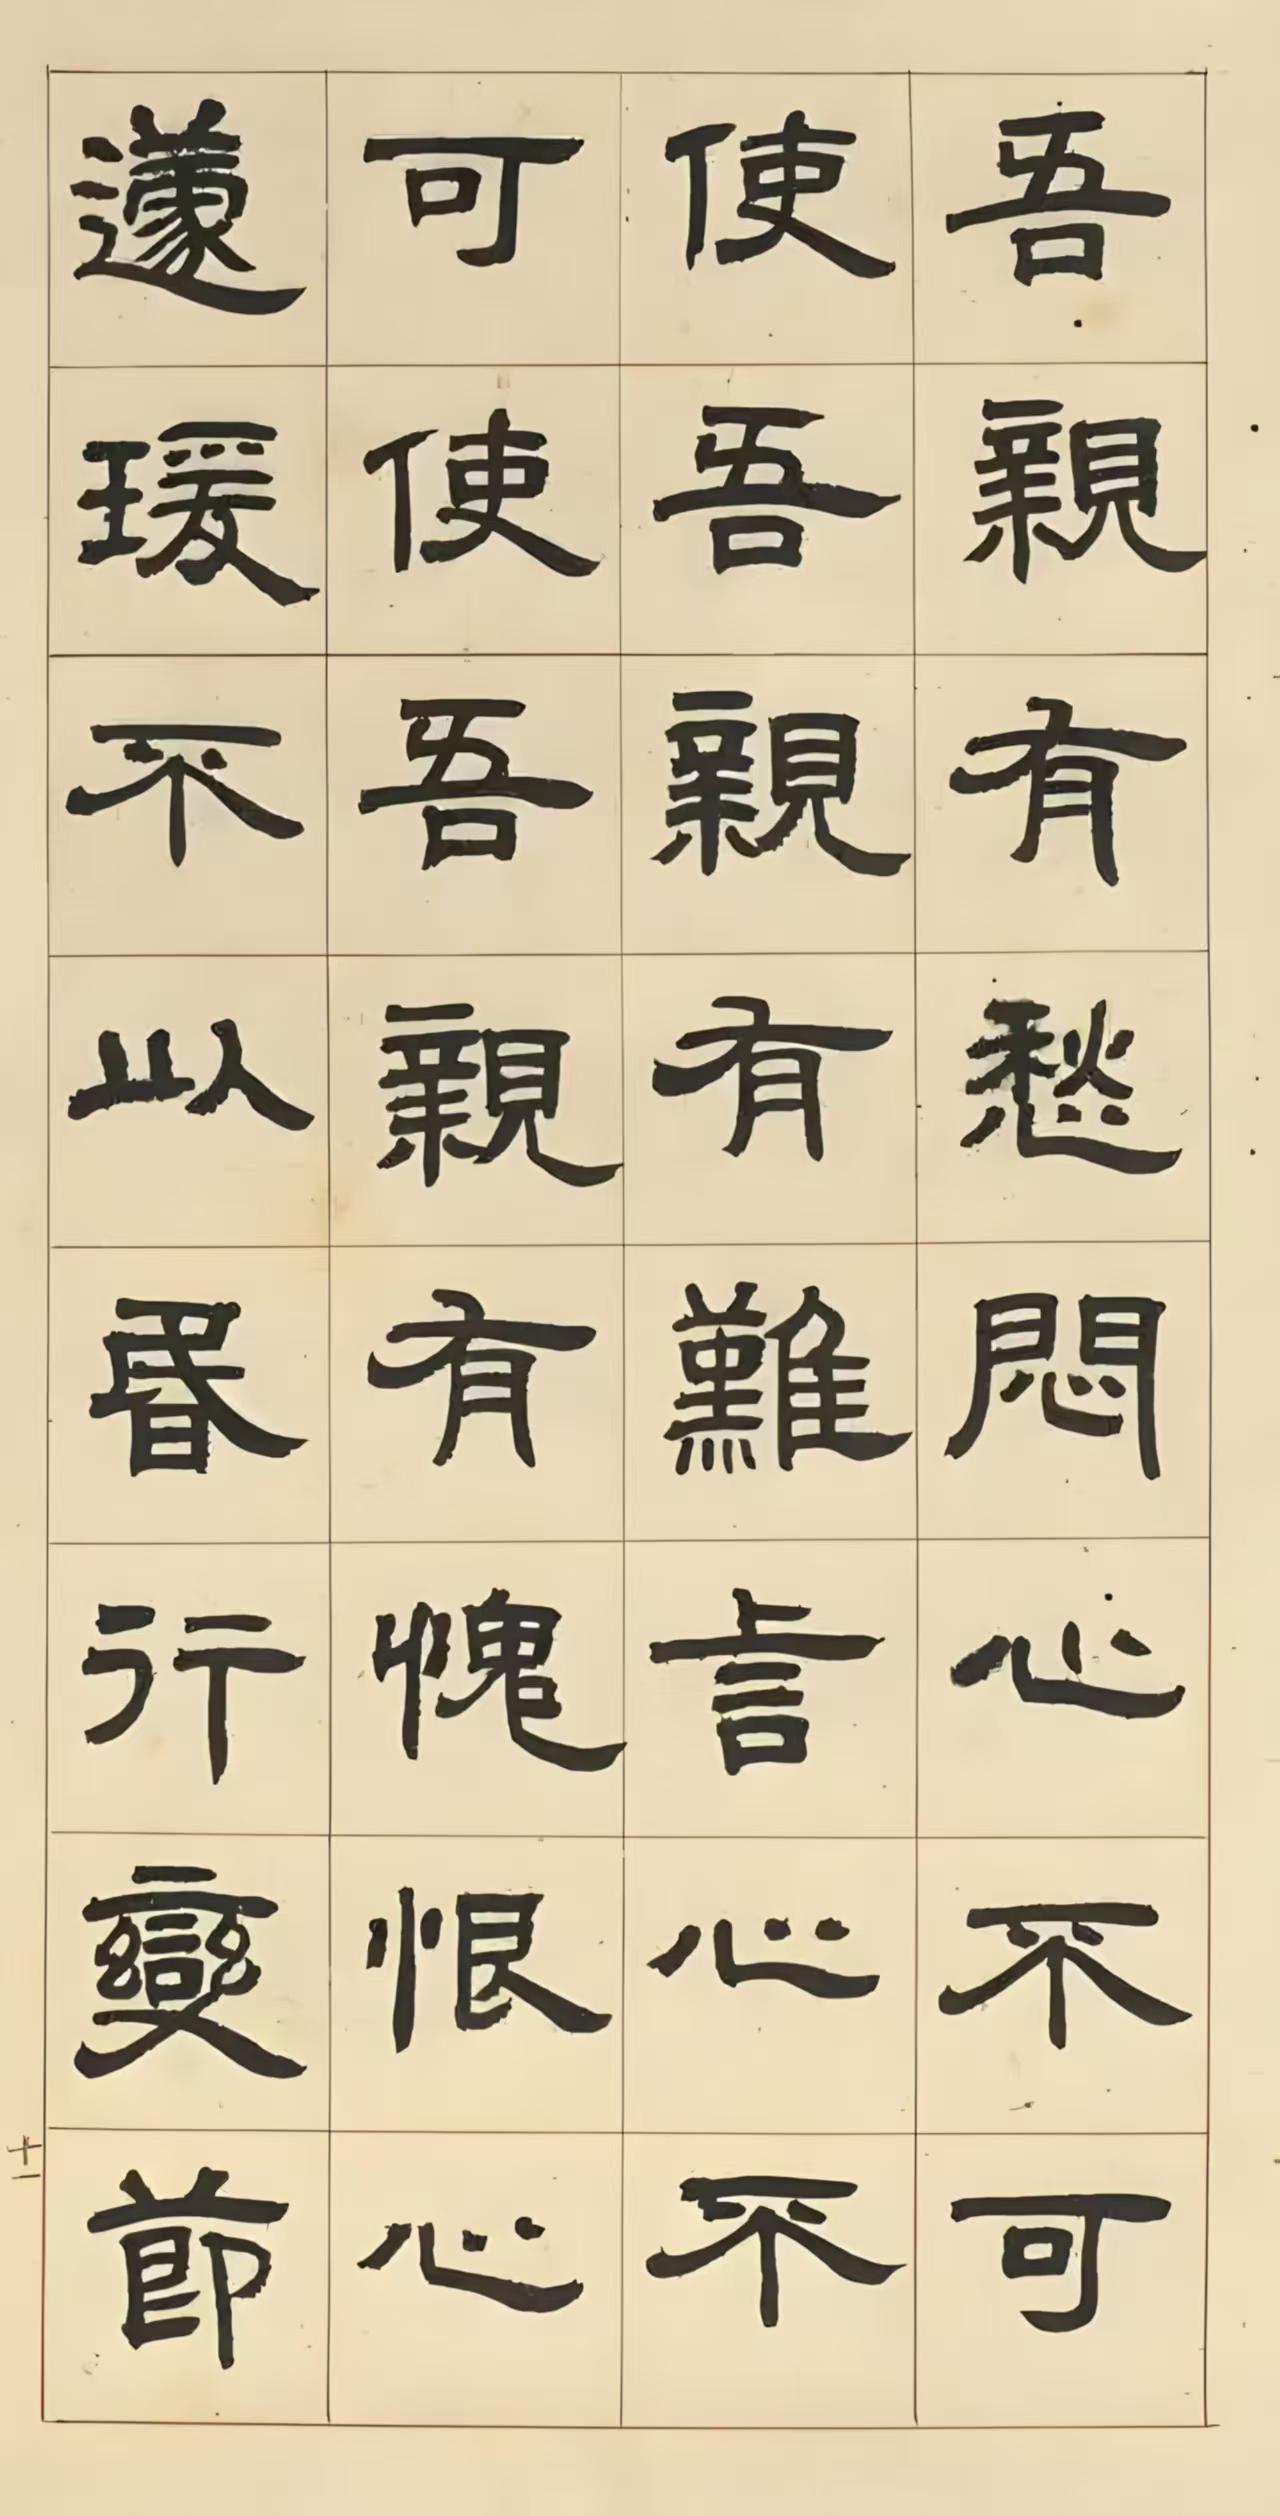 吾親有愁悶心不可
使吾親有難言心不
可使吾親有愧恨心
蘧瑗不以昏行變節
十一